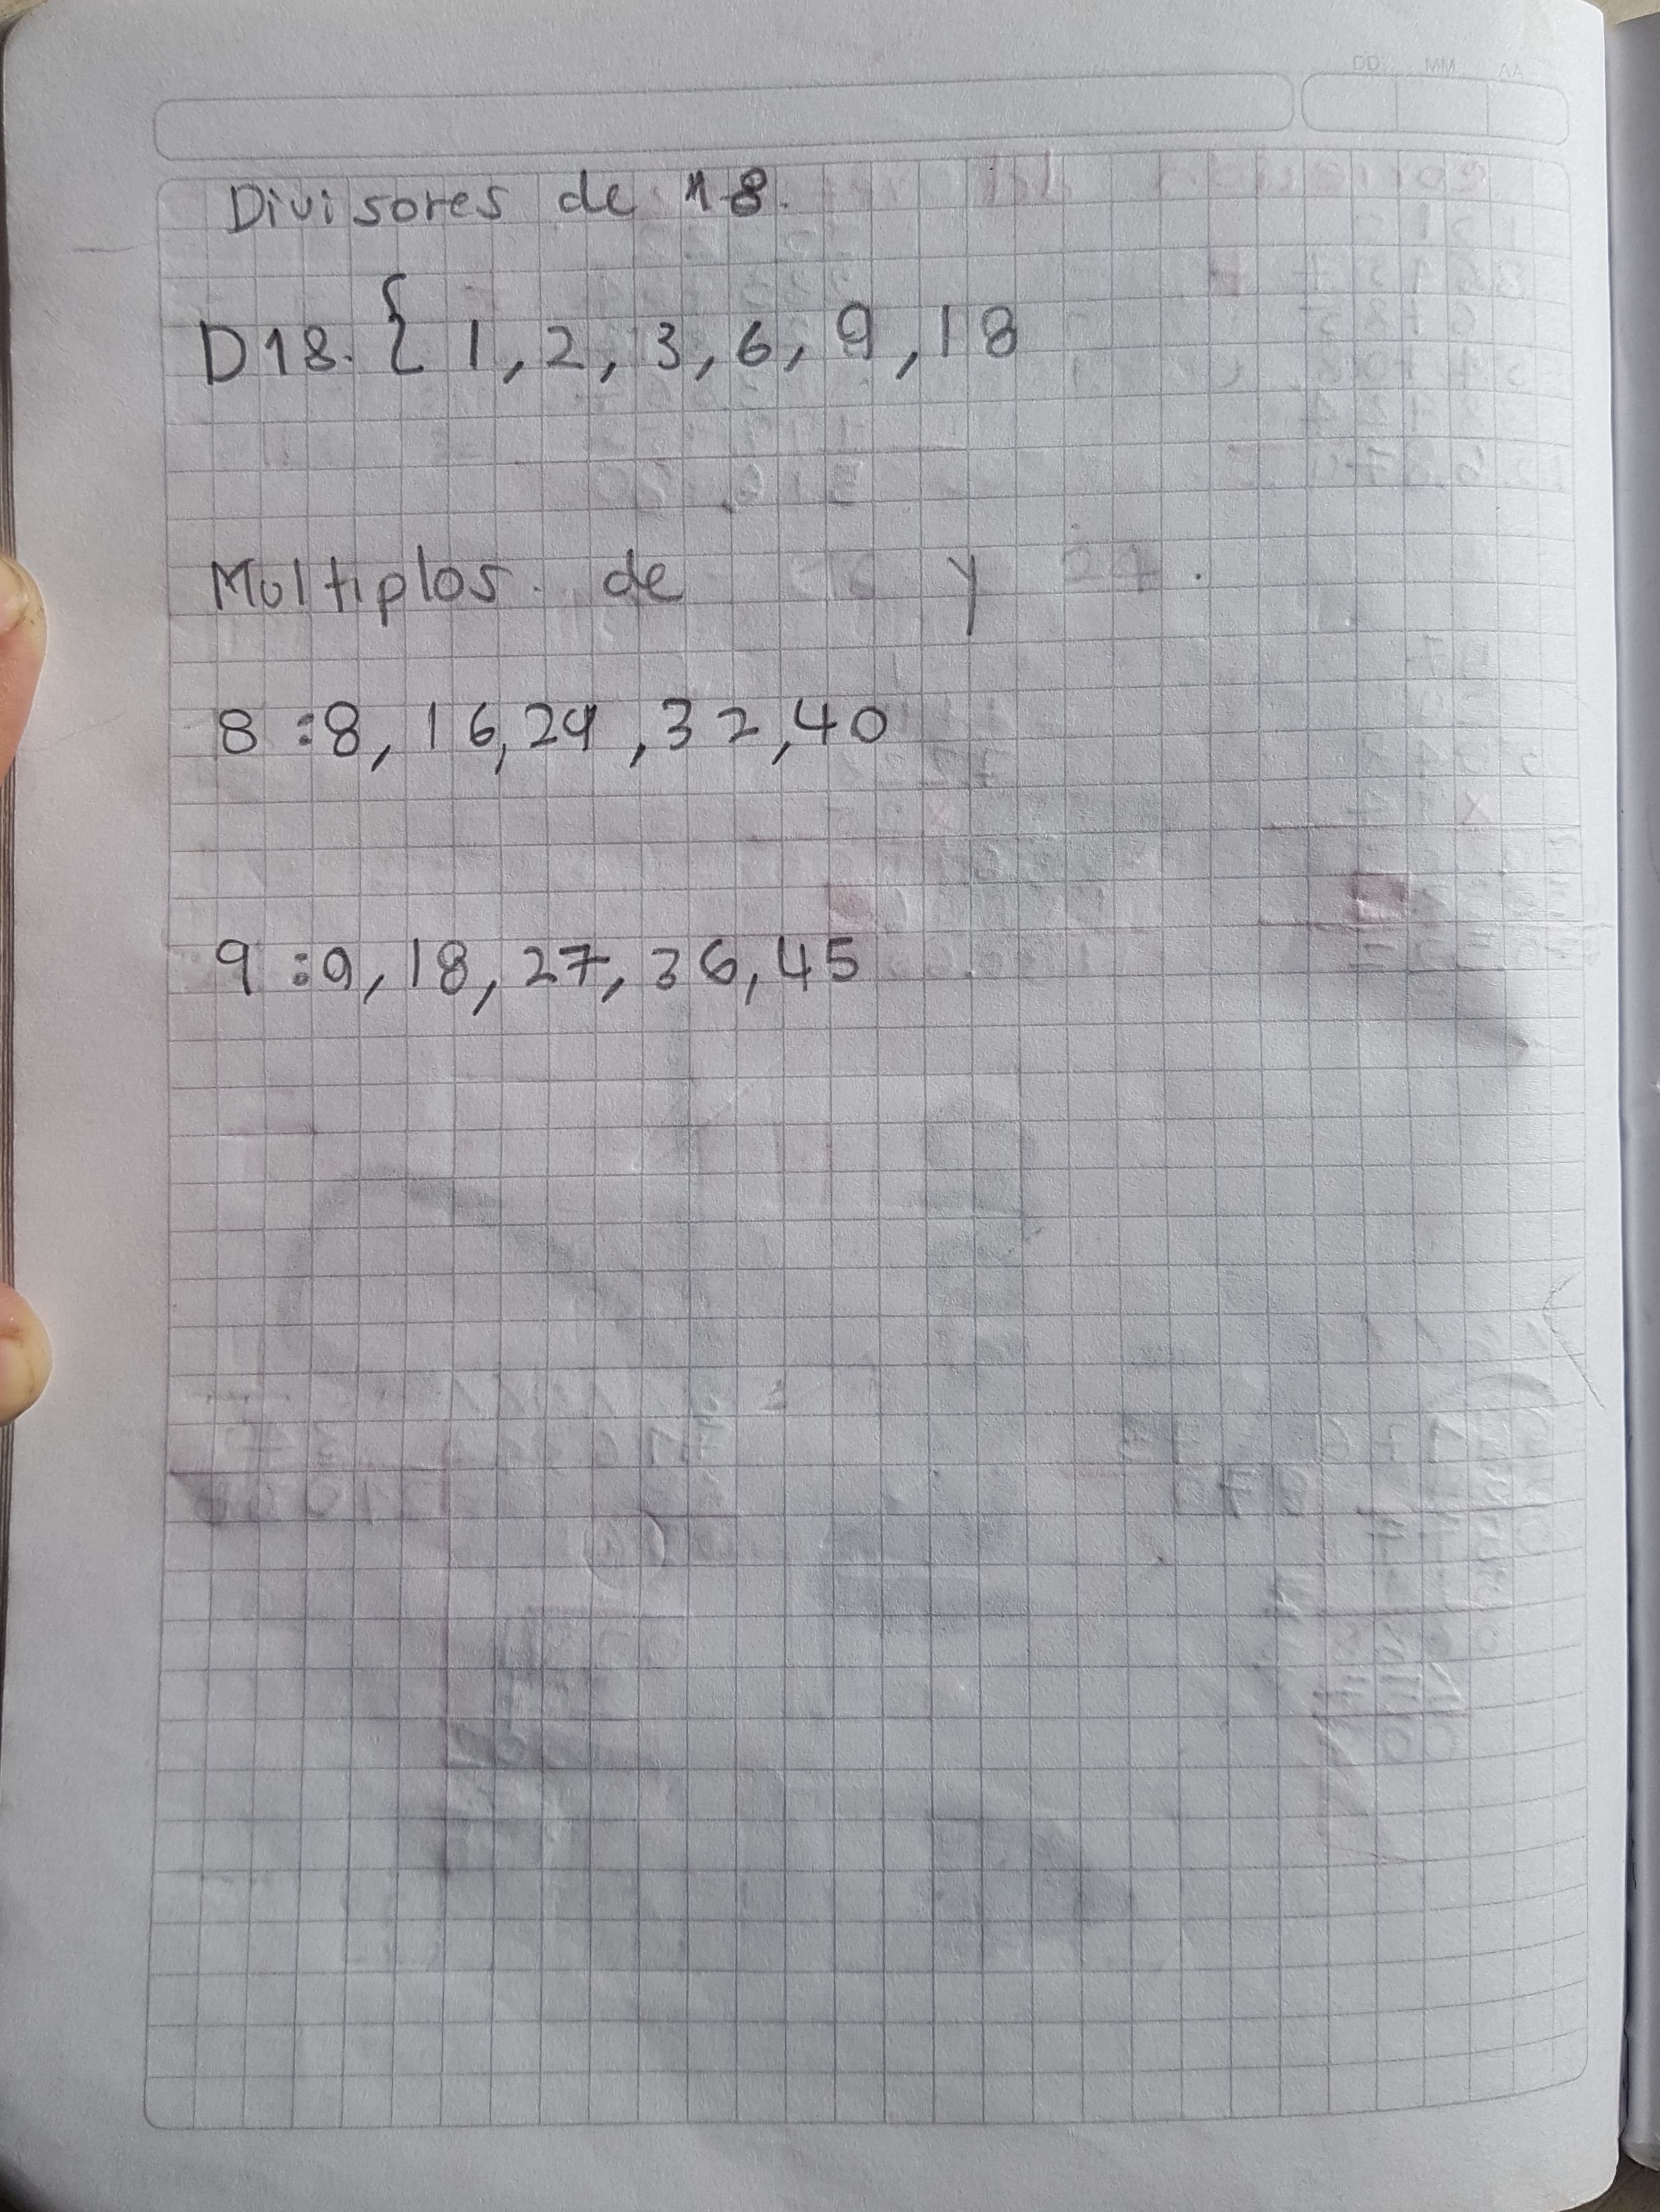 DD MM AA
Divisores de 18.
D18. { 1, 2, 3, 6, 9, 18
Multiplos. de y 27.
8 : 8, 16, 24, 32, 40
9 : 9, 18, 27, 36, 45